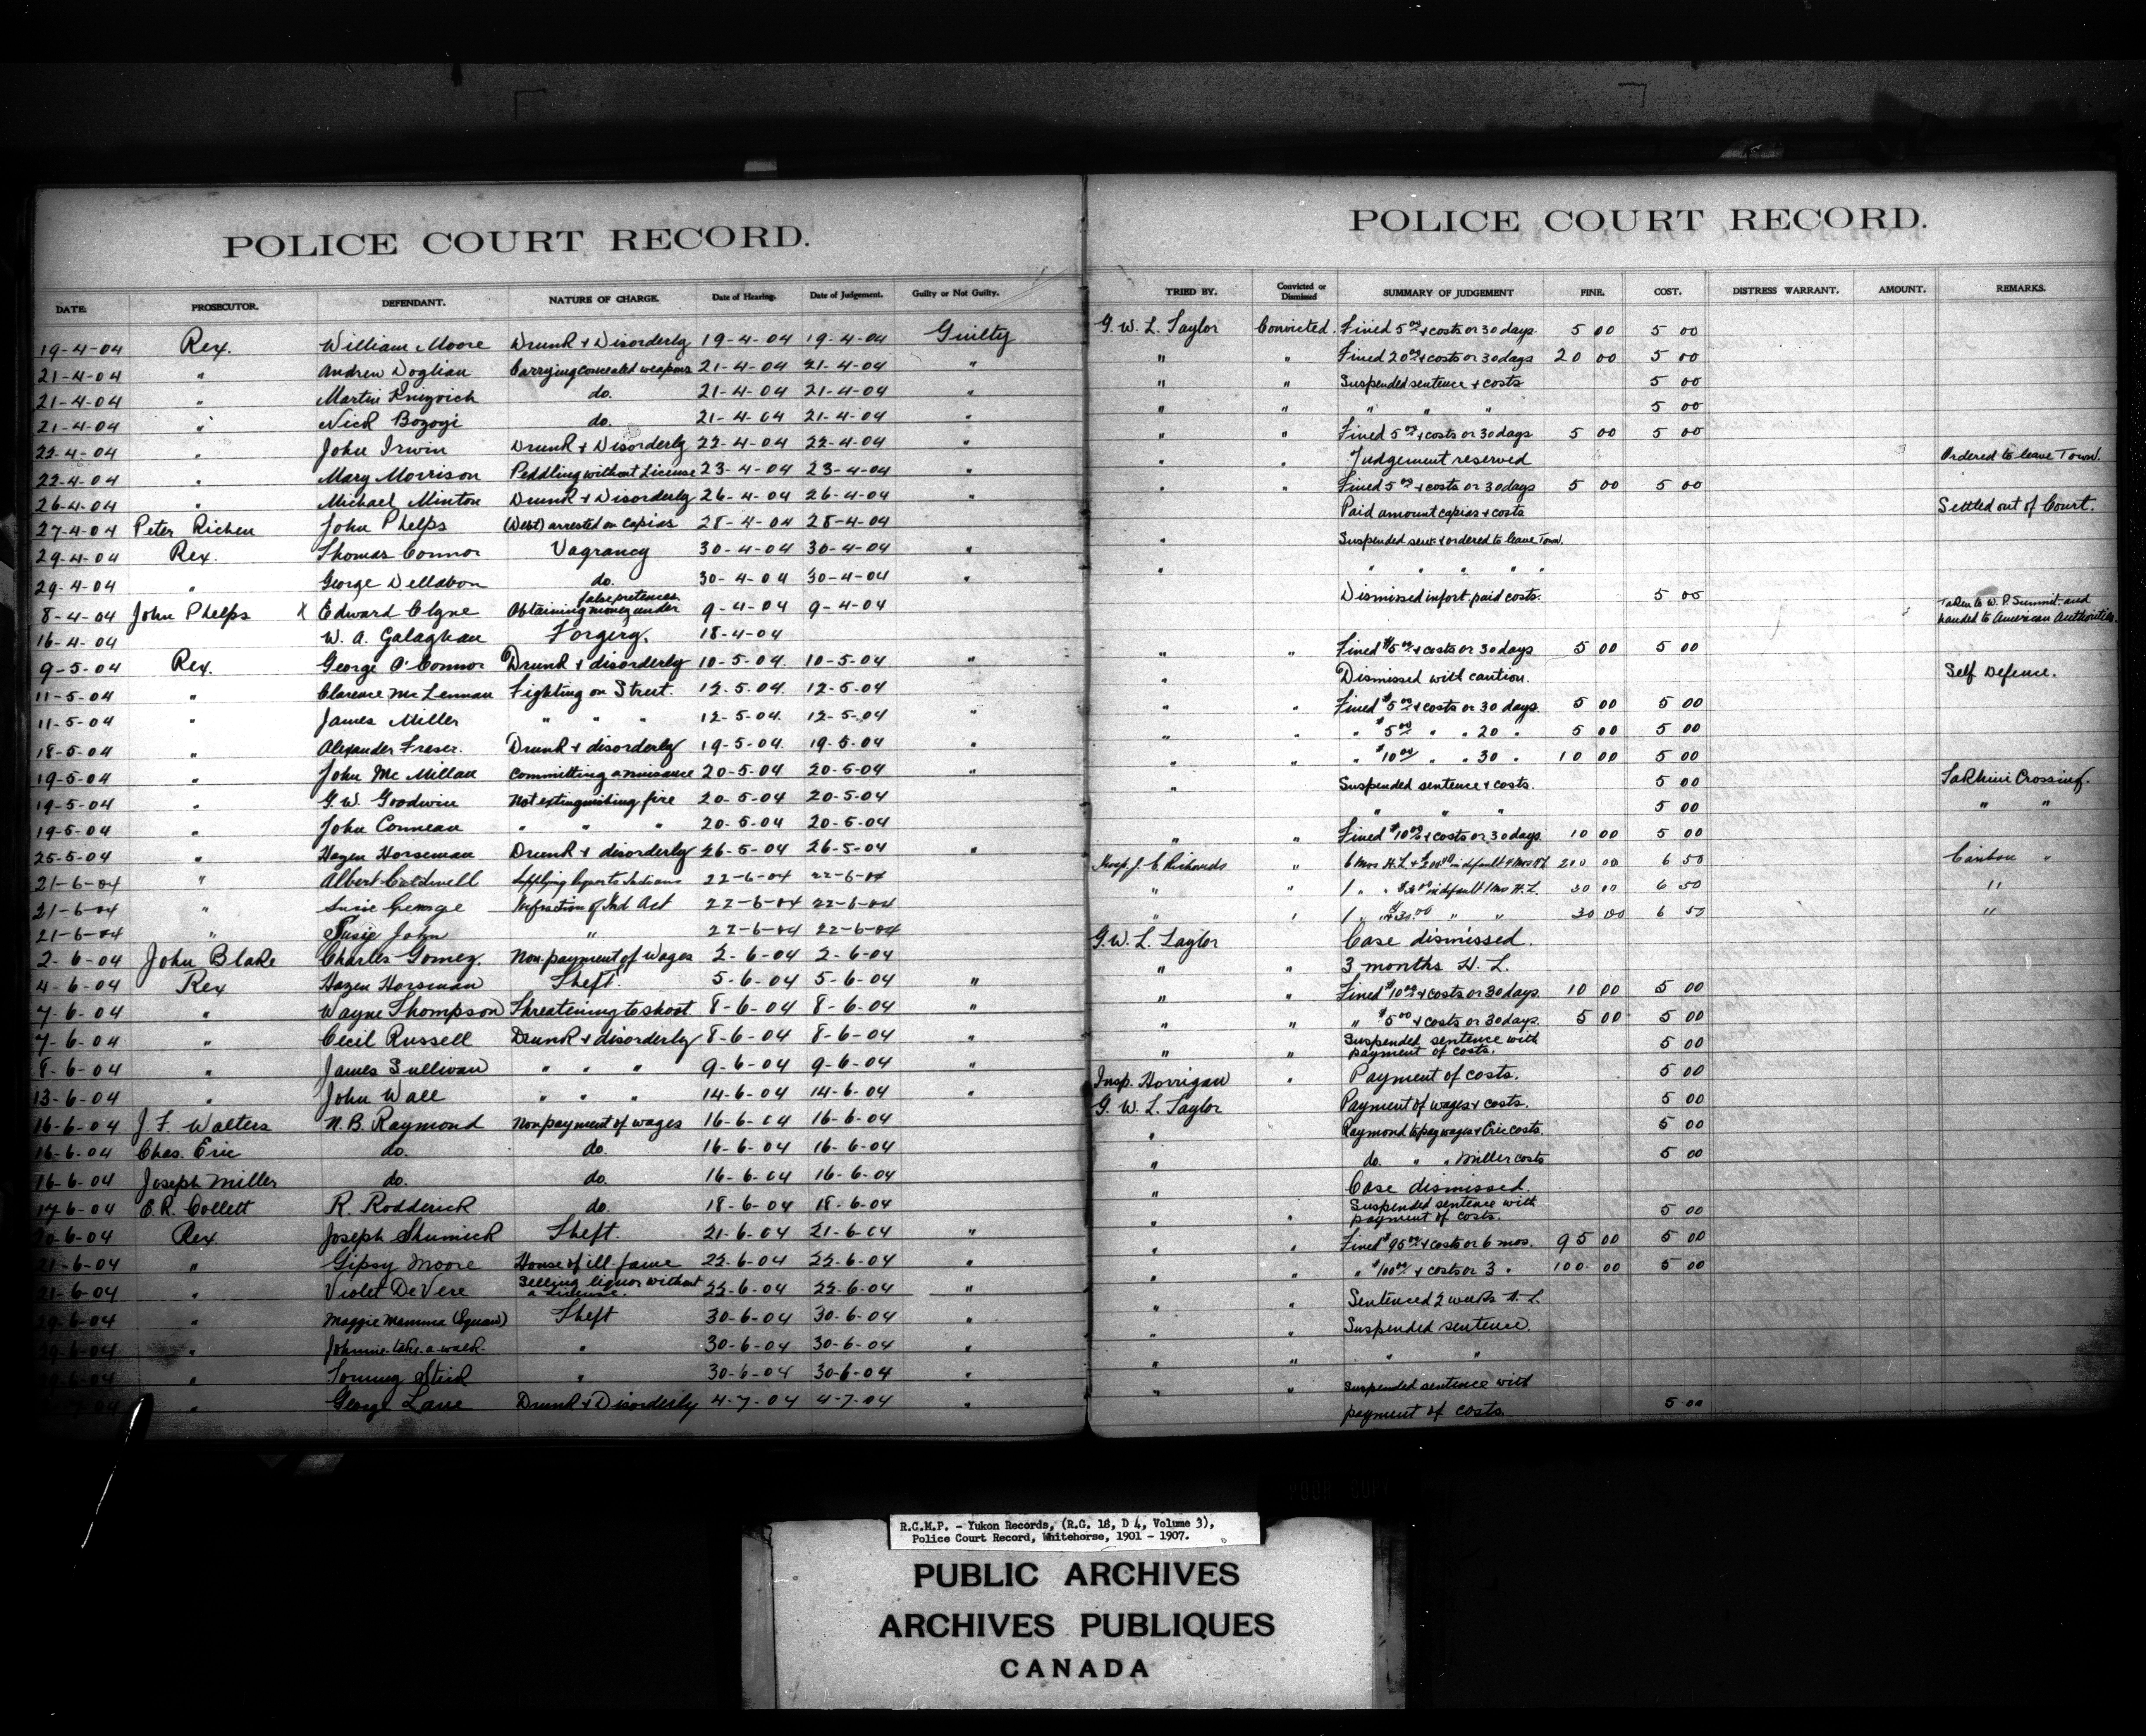 POLICE COURT RECORD.
DATE. PROSECUTOR. DEFENDANT. NATURE OF CHARGE. Date of Hearing. Date of Judgement. Guilty or Not Guilty.
19-4-04 Rex. William Moore Drunk & Disorderly 19-4-04 19-4-04 Guilty
21-4-04 " Andrew Doglian Carrying concealed weapons 21-4-04 21-4-04 "
21-4-04 " Martin do. 21-4-04 21-4-04 "
21-4-04 " Nick Bozogi do. 21-4-04 21-4-04 "
22-4-04 " John Irwin Drunk & Disorderly 22-4-04 22-4-04 "
22-4-04 " Mary Morrison Peddling without License 23-4-04 23-4-04 "
26-4-04 " Michael Minton Drunk & Disorderly 26-4-04 26-4-04 "
27-4-04 Peter Richen John Phelps (Debt) arrested on capias 28-4-04 28-4-04
29-4-04 Rex. Thomas Connor Vagrancy 30-4-04 30-4-04 "
29-4-04 " George Dellabon do. 30-4-04 30-4-04 "
8-4-04 John Phelps X Edward Clyne Obtaining money under false pretences 9-4-04 9-4-04
16-4-04 W. A. Galaghan Forgery. 18-4-04
9-5-04 Rex. George O'Connor Drunk & disorderly 10-5-04. 10-5-04 "
11-5-04 " Clarence McLennan Fighting on Street. 12-5-04. 12-5-04
11-5-04 " James Miller " " " 12-5-04. 12-5-04 "
18-5-04 " Alexander Fraser. Drunk & disorderly 19-5-04. 19-5-04 "
19-5-04 " John McMillan committing a nuisance 20-5-04 20-5-04 "
19-5-04 " G. W. Goodwin Not extinguishing fire 20-5-04 20-5-04
19-5-04 " John Conneau " " " 20-5-04 20-5-04
25-5-04 " Hazen Horseman Drunk & disorderly 26-5-04 26-5-04 "
21-6-04 " Albert Caldwell Supplying liquor to Indians 22-6-04 22-6-04
21-6-04 " Susie George Infraction of Ind Act 22-6-04 22-6-04
21-6-04 " Susie John " 22-6-04 22-6-04
2-6-04 John Blake Charles Gomez. Non payment of wages 2-6-04 2-6-04
4-6-04 Rex Hazen Horseman Theft. 5-6-04 5-6-04 "
7-6-04 " Wayne Thompson Threatening to shoot 8-6-04 8-6-04 "
7-6-04 " Cecil Russell Drunk & disorderly 8-6-04 8-6-04 "
8-6-04 " James Sullivan " " " 9-6-04 9-6-04 "
13-6-04 " John Wall " " " 14-6-04 14-6-04 "
16-6-04 J. F. Walters N. B. Raymond Non payment of wages 16-6-04 16-6-04
16-6-04 Chas. Eric do. do. 16-6-04 16-6-04
16-6-04 Joseph Miller do. do. 16-6-04 16-6-04
17-6-04 E. R. Collett R. Rodderick do. 18-6-04 18-6-04
20-6-04 Rex. Joseph Shumick Theft. 21-6-04 21-6-04 "
21-6-04 " Gipsy Moore House of ill-fame 22-6-04 22-6-04 "
21-6-04 " Violet DeVere Selling liquor without a license. 22-6-04 22-6-04 "
29-6-04 " Maggie Mamma (Squaw) Theft 30-6-04 30-6-04 "
29-6-04 " Johnnie-take-a-walk. " 30-6-04 30-6-04 "
" Tommy Stick " 30-6-04 30-6-04 "
" George Lane Drunk & Disorderly 4-7-04 4-7-04 "
POLICE COURT RECORD.
TRIED BY. Convicted or Dismissed SUMMARY OF JUDGEMENT FINE. COST. DISTRESS WARRANT. AMOUNT. REMARKS.
G. W. L. Taylor Convicted. Fined 5 00 & costs or 30 days. 5 00 5 00
" " Fined 20 00 & costs or 30 days 20 00 5 00
" " Suspended sentence & costs 5 00
" " " " " 5 00
" " Fined 5 00 & costs or 30 days 5 00 5 00
" " Judgement reserved Ordered to leave Town.
" " Fined 5 00 & costs or 30 days 5 00 5 00
Paid amount capias & costs Settled out of Court.
" Suspended sent. & ordered to leave Town.
" " " " " "
Dismissed infort. paid costs. 5 00
Taken to W. P. Summit. and handed to American Authorities.
" " Fined $5 00 & costs or 30 days 5 00 5 00
" Dismissed with caution. Self Defence.
" " Fined $5 00 & costs or 30 days. 5 00 5 00
" " " $5 00 " " 20 " 5 00 5 00
" " " $10 00 " " 30 " 10 00 5 00
" Suspended sentence & costs. 5 00 Takhini Crossing.
" " " 5 00 " "
" " Fined $10 00 & costs or 30 days. 10 00 5 00
Insp. J. C. Richards " 6 Mos H.L. & in default 210 00 6 50 Caribou "
" " 1 " " in default 1 Mo H.L. 30 00 6 50 "
" " 1 " $30.00 " " 30 00 6 50 "
G. W. L. Taylor Case dismissed.
" " 3 months H. L.
" " Fined $10 00 & costs or 30 days. 10 00 5 00
" " " $5 00 & costs or 30 days. 5 00 5 00
" " Suspended sentence with payment of costs. 5 00
Insp. Horrigan " Payment of costs. 5 00
G. W. L. Taylor Payment of wages & costs. 5 00
" Raymond to pay wages & Eric costs. 5 00
" do. " " Miller costs 5 00
" Case dismissed.
" " Suspended sentence with payment of costs. 5 00
" " Fined $95 00 & costs or 6 mos. 95 00 5 00
" " " $100 00 & costs or 3 " 100 00 5 00
" " Sentenced 2 weeks H. L.
" " Suspended sentence.
" " " "
" " Suspended sentence with
payment of costs. 5 00
R.C.M.P. - Yukon Records, (R.G. 18, D 4, Volume 3),
Police Court Record, Whitehorse, 1901 - 1907.
PUBLIC ARCHIVES
ARCHIVES PUBLIQUES
CANADA